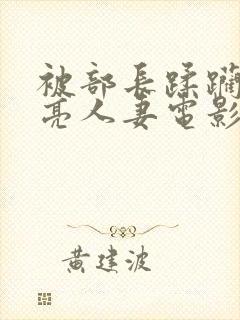 被部長蹂躪
亮人妻電影
黃建波